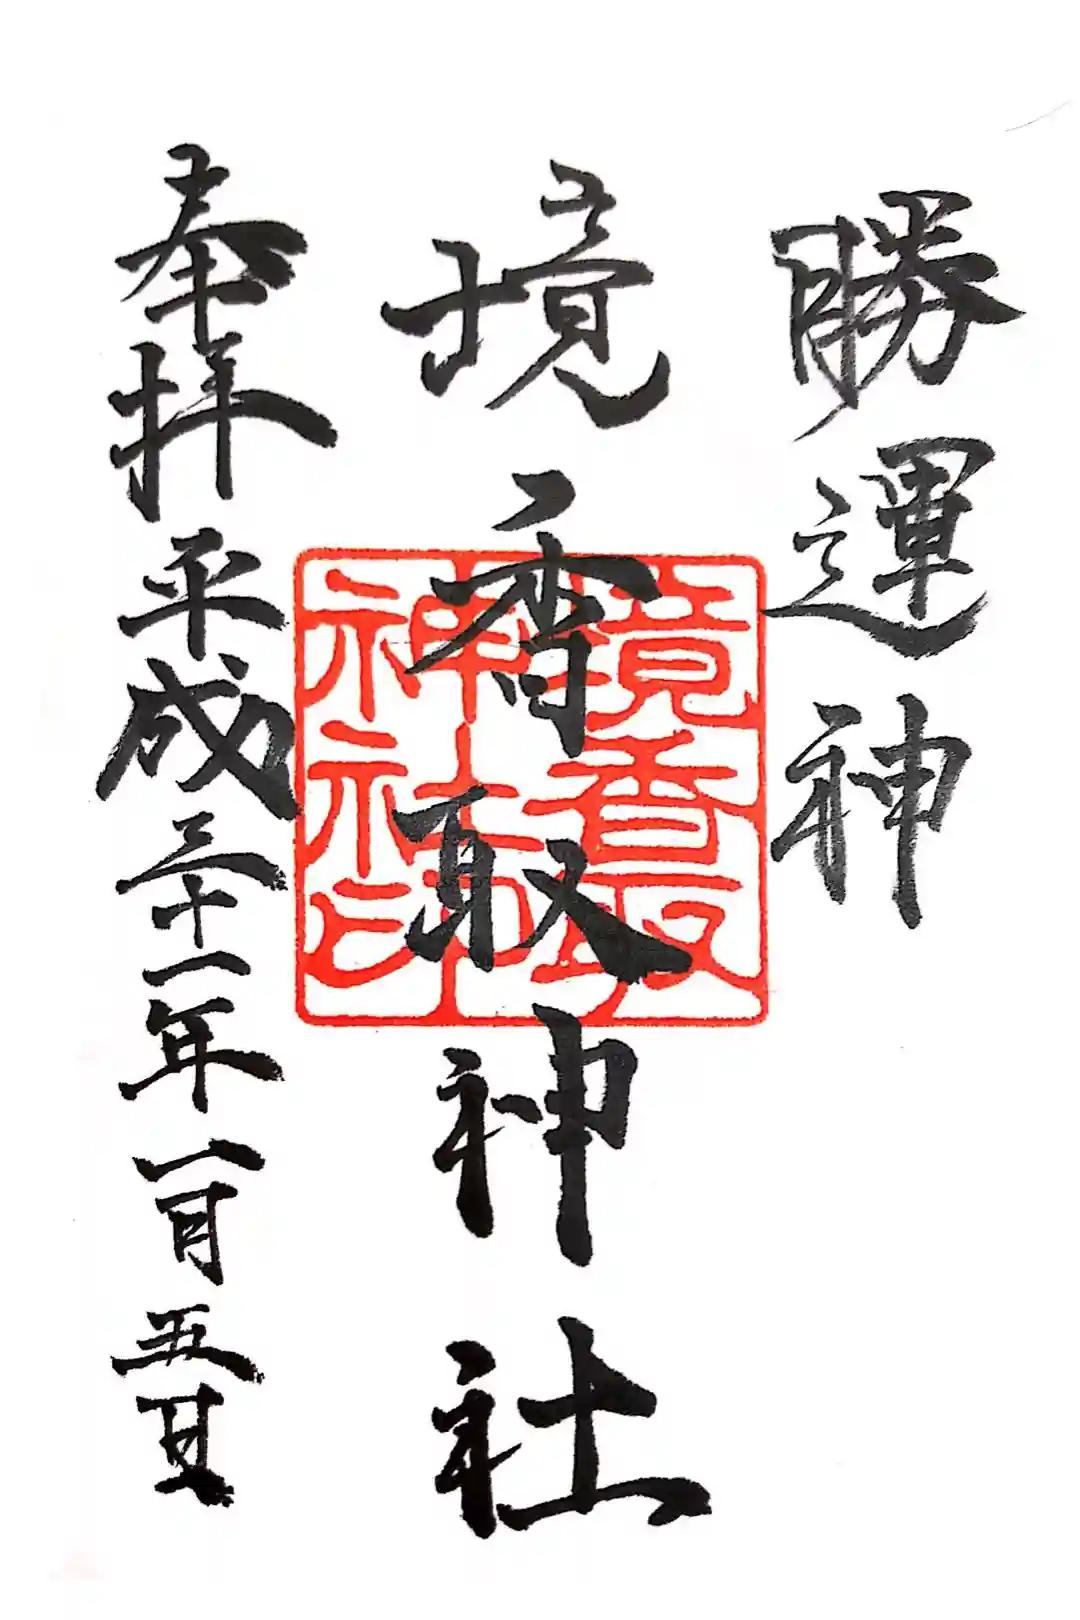 勝運神
境香取神社
境香取
神社印
奉拝
平成三十一年一月五日